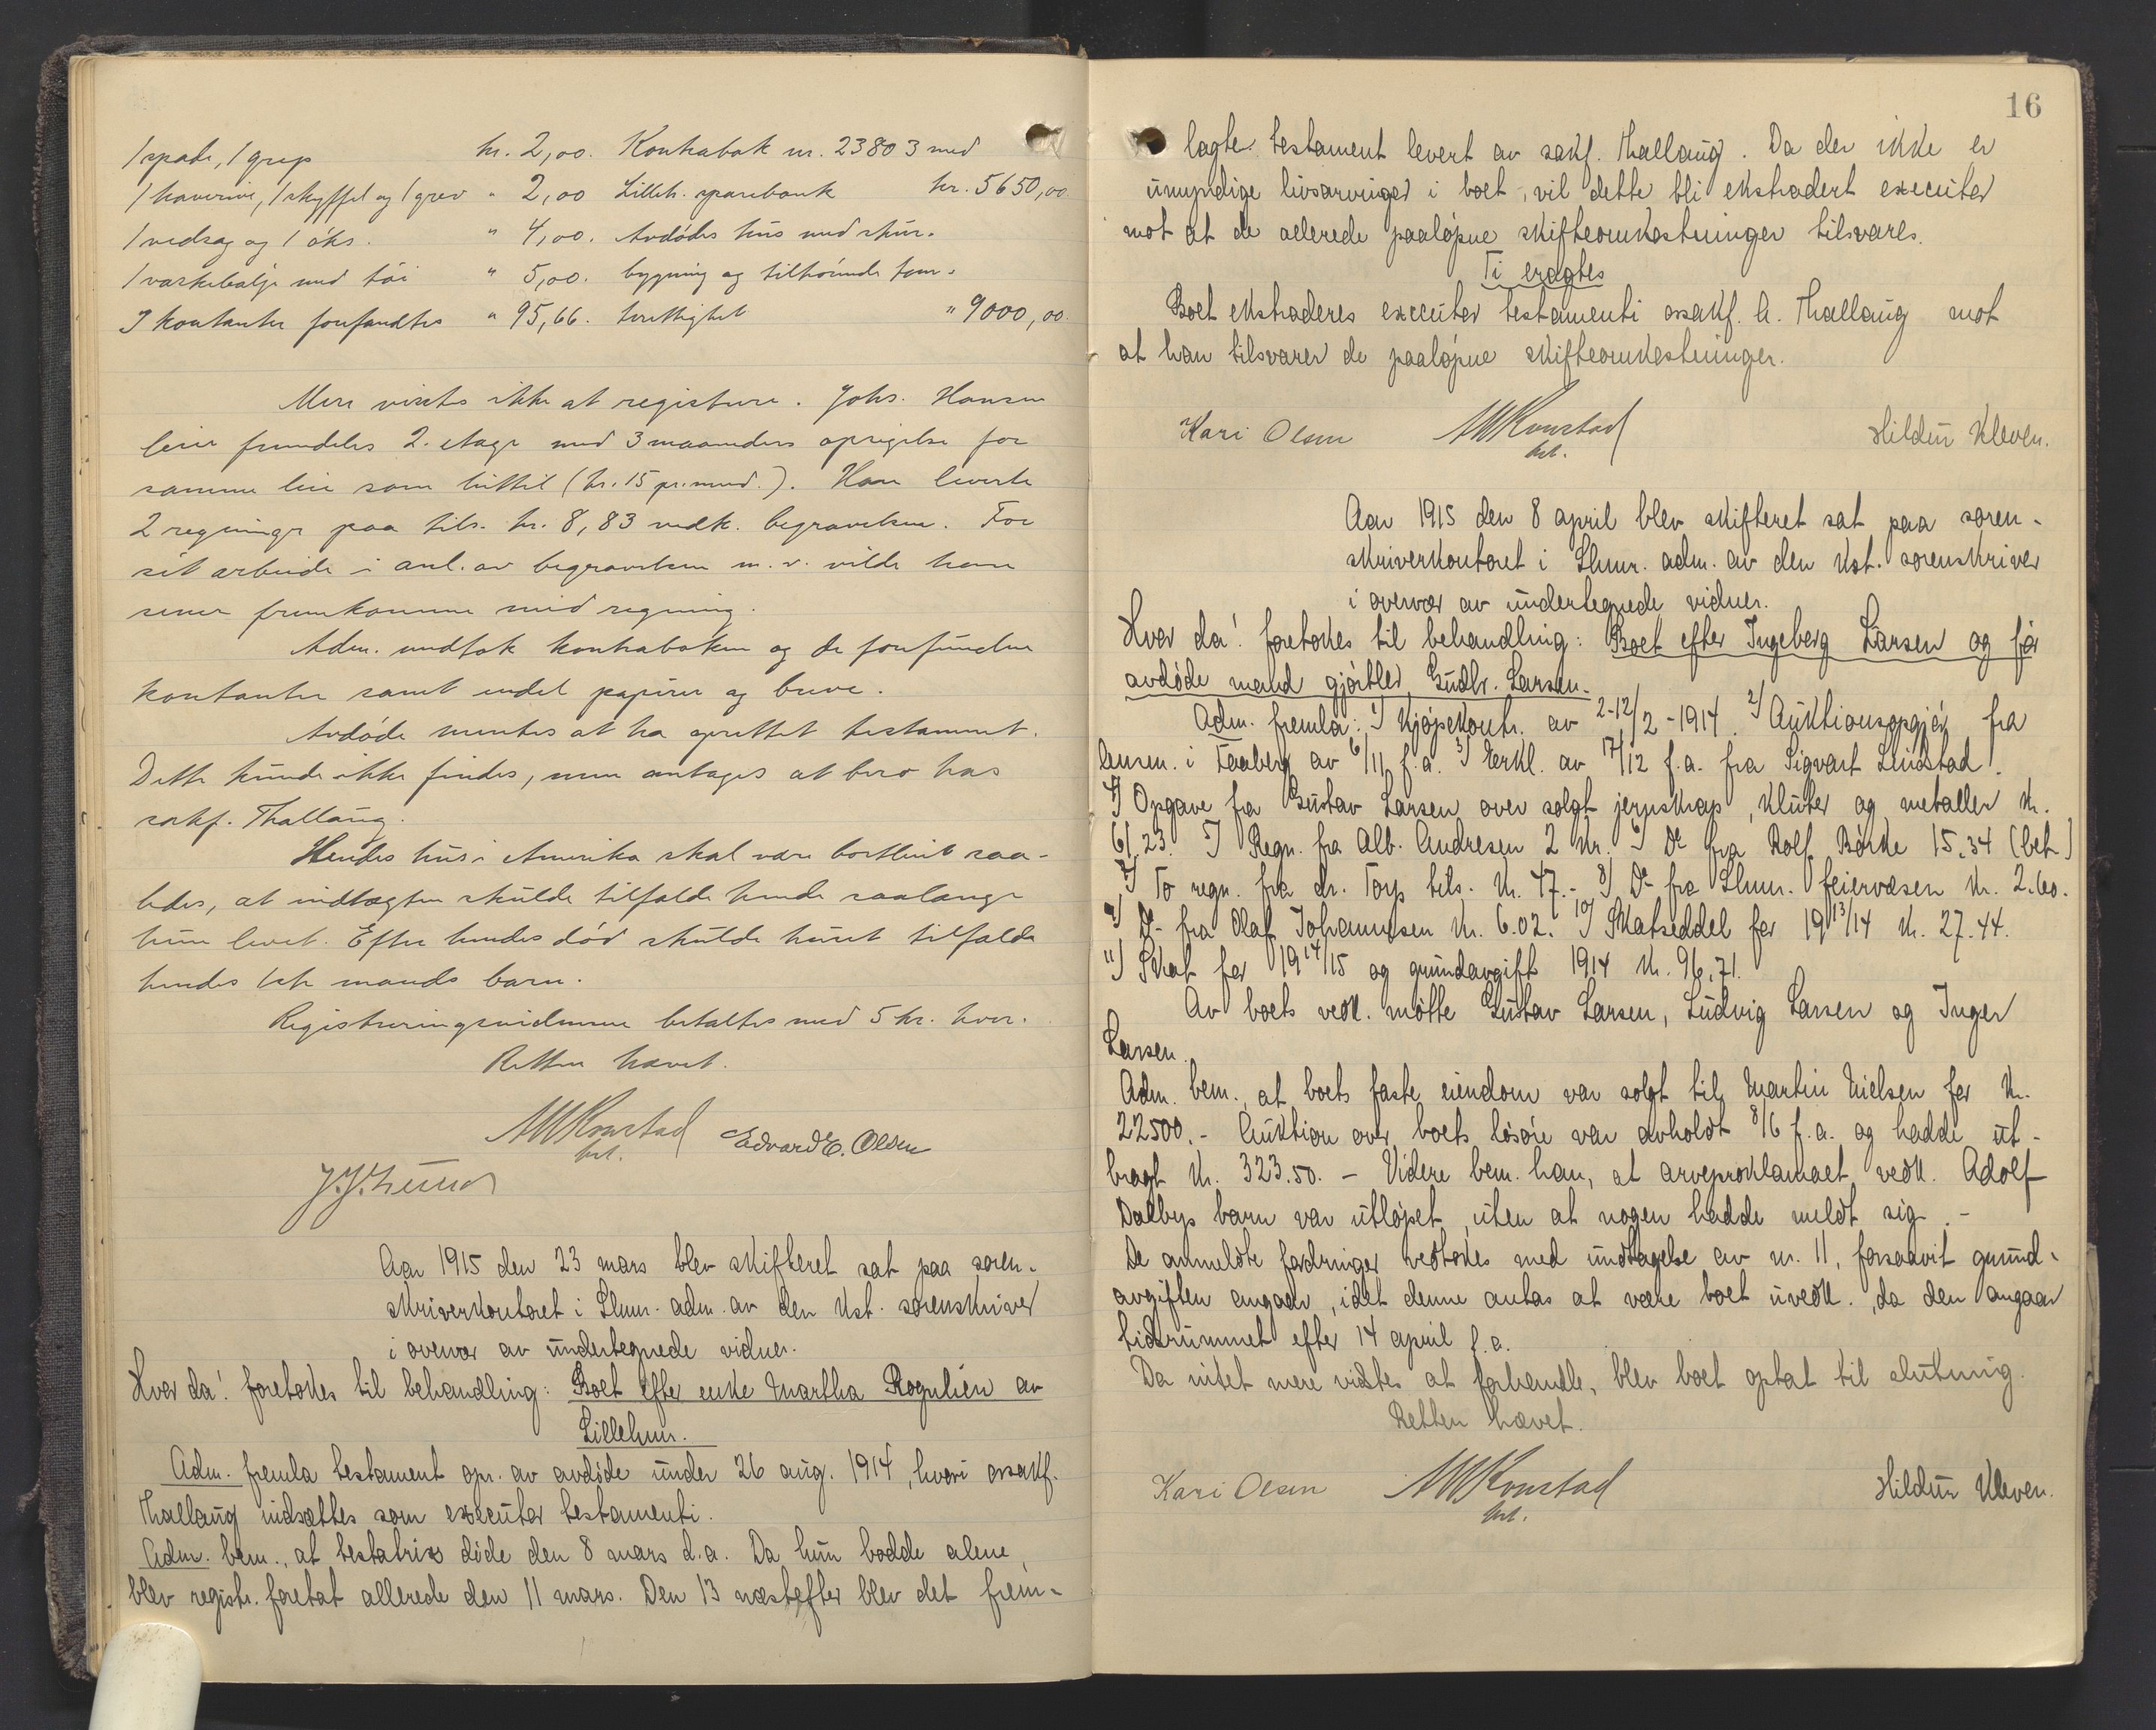 1 spade, 1 grep kr. 2,00.
1 haverive, 1 skyffel og 1 grev " 2,00
1 vedsag og 1 öks. " 4,00.
1 vaskebalje med töi " 5,00.
I kontanter forefandtes " 95,66.
Kontrabok nr. 23803 med
Lilleh. sparebank kr. 5650,00.
Avdödes hus med skur-
bygning og tilhörende tom-
terettighet " 9000,00.
Mere vistes ikke at registrere. Johs. Hansen
leier fremdeles 2. etage med 3 maaneders opsigelse for
samme leie som hittil (kr. 15 pr. mnd.). Han leverte
2 regninger paa tils. kr. 8,83 vedk. begravelsen. For
sit arbeide i anl. av begravelsen m. v. vilde han
senere fremkomme med regning.
Adm. mottok kontraboken og de forefundne
kontanter samt endel papirer og breve.
Avdöde mentes at ha oprettet testament.
Dette kunde ikke findes, men antages at bero hos
sakf. Thallaug.
Hendes hus i Amerika skal være bortleiet saa-
ledes, at indtægten skulde tilfalde hende saalænge
hun levet. Efter hendes död skulde huset tilfalde
hendes 1ste mands barn.
Registreringsvidnerne betaltes med 5 kr. hver.
Retten hævet.
MWKonstad
kst.
Edvard E. Olsen
Aar 1915 den 23 mars blev skifteret sat paa soren-
skriverkontoret i Lhmr. adm. av den kst. sorenskriver
i overvær av undertegnede vidner.
Hvor da! foretokes til behandling: Boet efter enke Martha Rognlien av
Lillehmr.
Adm. fremla testament opr. av avdöde under 26 aug. 1914, hvori osakf.
Thallaug indsættes som executor testamenti.
Adm. bem., at testatrix döde den 8 mars d.a. Da hun bodde alene,
blev registr. foretat allerede den 11 mars. Den 13 næstefter blev det frem-
16
lagte testament levert av sakf. Thallaug. Da der ikke er
umyndige livsarvinger i boet, vil dette bli ekstradert executor
mot at de allerede paalöpne skifteomkostninger tilsvares.
Ti eragtes
Boet ekstraderes executor testamenti osakf. A. Thallaug mot
at han tilsvarer de paalöpne skifteomkostninger.
Kari Olsen MWKonstad Hildur Kleven.
kst.
Aar 1915 den 8 april blev skifteret sat paa soren-
skriverkontoret i Lhmr. adm. av den kst. sorenskriver
i overvær av undertegnede vidner.
Hvor da! foretokes til behandling: Boet efter Ingeborg Larsen og för
avdöde mand gjörtler Gudbr. Larsen.
Adm. fremla: 1) Kjöpekontr. av 2-12/2-1914. 2) Auktionsopgjör fra
lensm. i Faaberg av 6/11 f.a. 3) Erkl. av 17/12 f.a. fra Sigvart Lindstad.
4) Opgave fra Gustav Larsen over solgt jernskrap, kluter og metaller kr.
61,23. 5) Regn. fra Alb. Andresen 2 kr. 6) Do fra Rolf Börke 15.34 (bet.)
7) To regn. fra dr. Torp tils. kr. 47.- 8) Do fra Lhmr. feiervæsen kr. 2.60.
9) Do fra Olaf Johannesen kr. 6.02. 10) Skatseddel for 1913/14 kr. 27.44.
11) Skat for 1914/15 og grundavgift 1914 kr. 96,71.
Av boets vedk. mötte Gustav Larsen, Ludvig Larsen og Inger
Larsen.
Adm. bem., at boets faste eiendom var solgt til Martin Nielsen for kr.
22500.- Auktion over boets lösöre var avholdt 8/6 f.a. og hadde ut-
bragt kr. 323.50. - Videre bem. han, at arveproklamaet vedk. Adolf
Dalbys barn var utlöpet, uten at nogen hadde meldt sig. -
De anmeldte fordringer vedtokes med undtagelse av nr. 11, forsaavit grund-
avgiften angaar, idet denne antas at være boet uvedk., da den angaar
tidsrummet efter 14 april f.a.
Da intet mere vistes at forhandle, blev boet optat til slutning.
Retten hævet.
Kari Olsen MWKonstad Hildur Kleven.
kst.